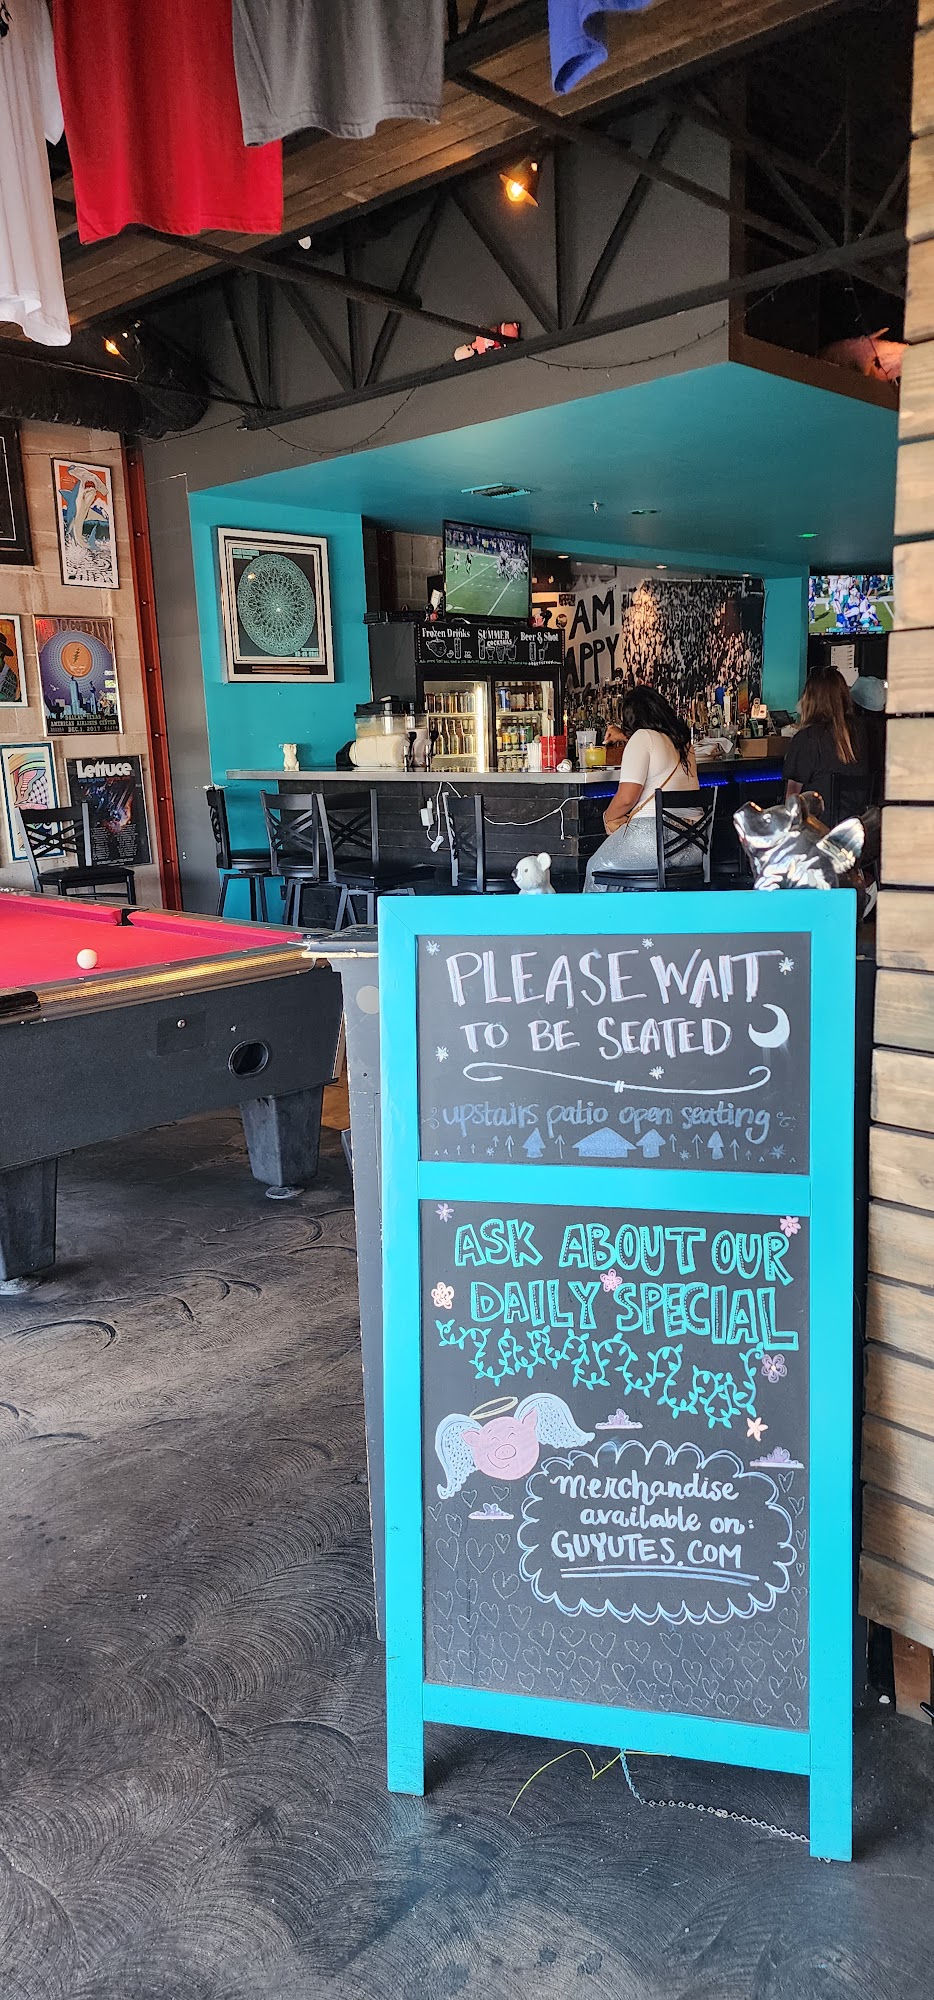 Frozen Drinks
SUMMER
COCKTAILS
Beer & Shot
I AM
HAPPY
DALLAS, TEXAS
AMERICAN AIRLINES CENTER
DEC. 1 2017
Lettuce
PLEASE WAIT
TO BE SEATED
upstairs patio open seating
ASK ABOUT OUR
DAILY SPECIAL
merchandise
available on:
GUYUTES.COM